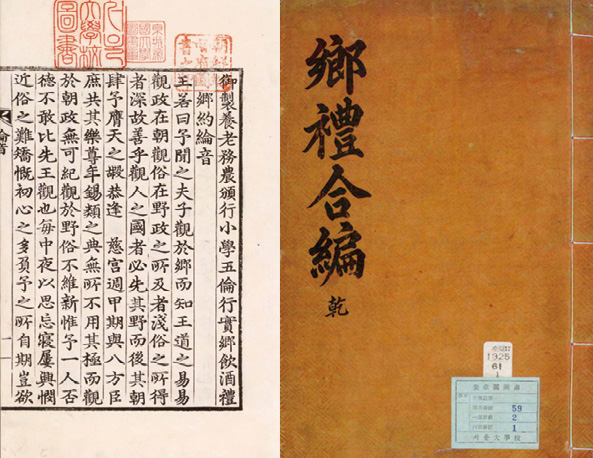 鄉禮合編
乾
1925
61
1
奎章閣圖書
59
2
1
서울大學校
서울大學校圖書
御製養老務農頒行小學五倫行實鄉飮酒禮
鄉約綸音
王若曰予聞之夫子觀於鄉而知王道之易易
觀政在朝觀俗在野政之所及者淺俗之所得
者深故善乎觀人之國者必先其野而後其朝
肆予膺天之嘏恭逢 慈宮週甲期與八方臣
庶共其樂尊年錫類之典無所不用其極而觀
於朝政無可紀觀於野俗不維新惟予一人否
德不敢比先王觀也每中夜以思忘寢屢興憫
近俗之難矯慨初心之多負予之所自期豈欲
綸音
一